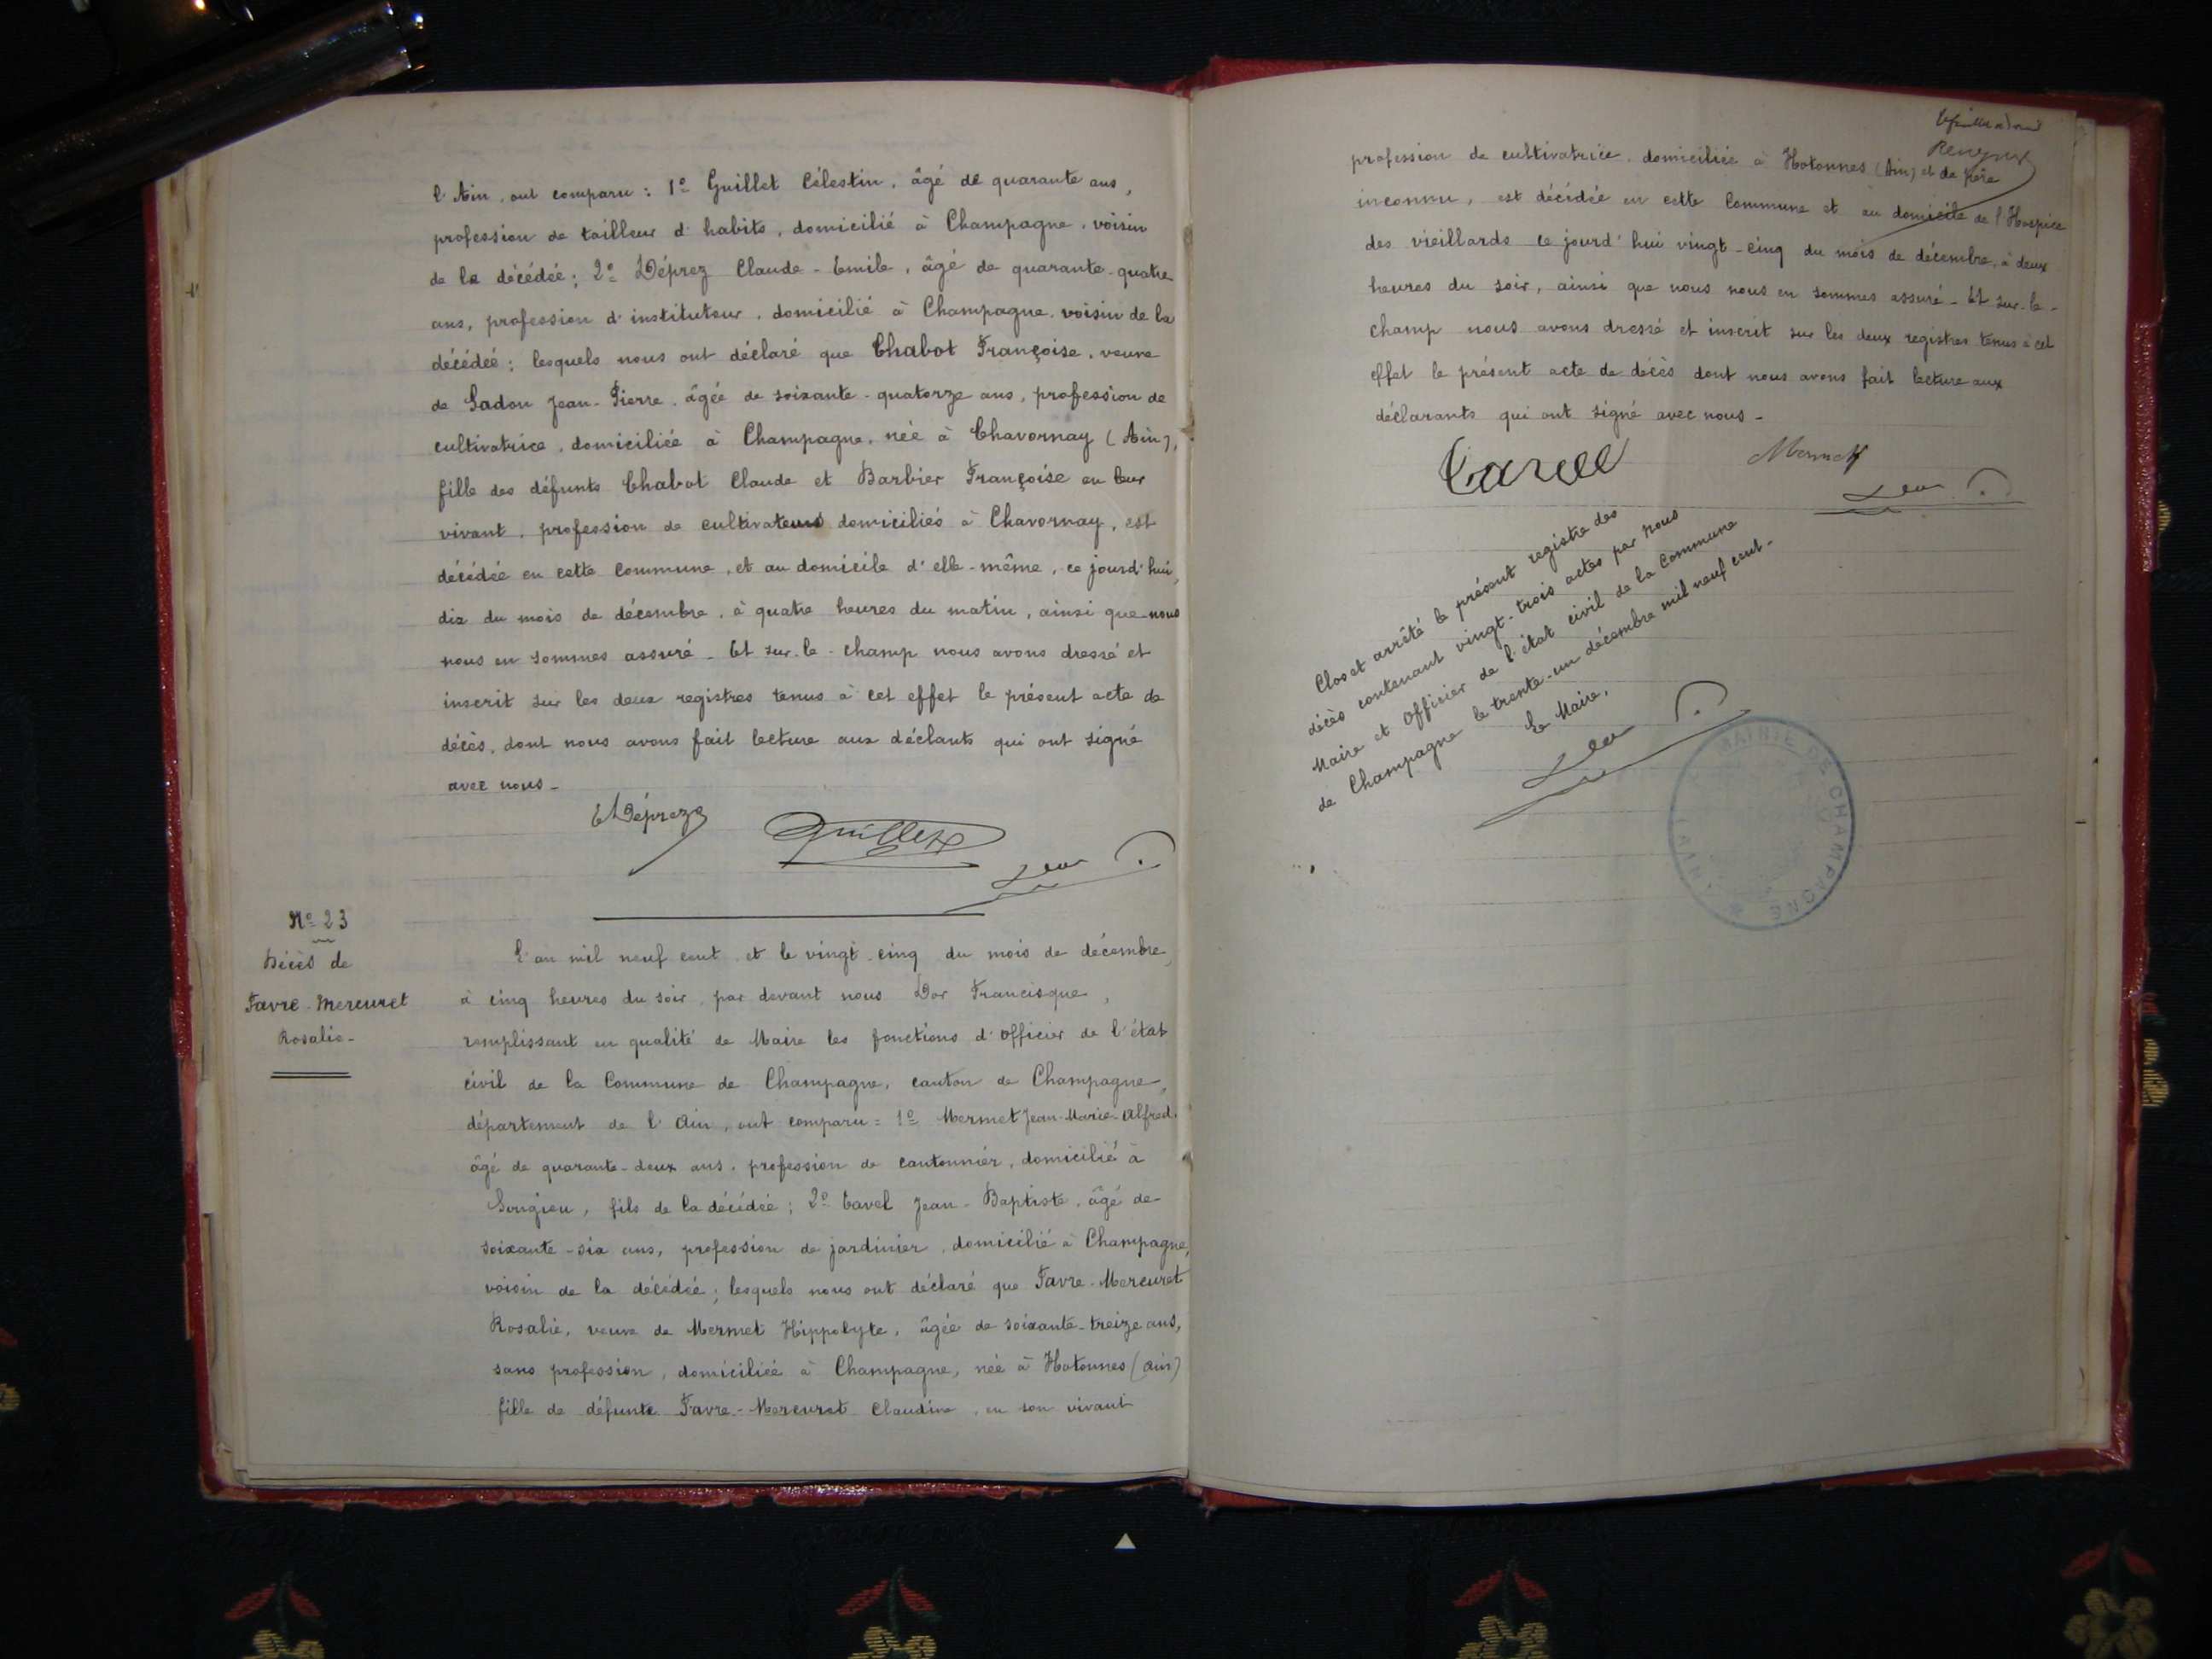 l'Ain, ont comparu : 1º Guillet Célestin, âgé de quarante ans,
profession de tailleur d'habits, domicilié à Champagne, voisin
de la décédée ; 2º Déprez Claude-Emile, âgé de quarante-quatre
ans, profession d'instituteur, domicilié à Champagne, voisin de la
décédée ; lesquels nous ont déclaré que Chabot Françoise, veuve
de Ladon Jean-Pierre, âgée de soixante-quatorze ans, profession de
cultivatrice, domiciliée à Champagne, née à Chavornay (Ain),
fille des défunts Chabot Claude et Barbier Françoise en leur
vivant, profession de cultivateurs domiciliés à Chavornay, est
décédée en cette Commune, et au domicile d'elle-même, ce jourd'hui,
dix du mois de décembre, à quatre heures du matin, ainsi que nous
nous en sommes assuré - Et sur-le-champ nous avons dressé et
inscrit sur les deux registres tenus à cet effet le présent acte de
décès, dont nous avons fait lecture aux déclants qui ont signé
avec nous -
EDéprez Guillet
Nº 23
Décès de
Favre-Mercuret
Rosalie -
L'an mil neuf cent et le vingt-cinq du mois de décembre,
à cinq heures du soir, par devant nous Dor Francisque,
remplissant en qualité de Maire les fonctions d'Officier de l'état
civil de la Commune de Champagne, canton de Champagne,
département de l'Ain, ont comparu = 1º Mermet Jean-Marie-Alfred,
âgé de quarante-deux ans, profession de cantonnier, domicilié à
Songieu, fils de la décédée ; 2º Cavel Jean-Baptiste, âgé de
soixante-six ans, profession de jardinier, domicilié à Champagne,
voisin de la décédée ; lesquels nous ont déclaré que Favre-Mercuret
Rosalie, veuve de Mermet Hippolyte, âgée de soixante-treize ans,
sans profession, domiciliée à Champagne, née à Hotonnes (Ain)
fille de défunte Favre-Mercuret Claudine, en son vivant
profession de cultivatrice, domiciliée à Hotonnes (Ain) et de père
inconnu, est décédée en cette Commune et au domicile de l'Hospice
des vieillards ce jourd'hui vingt-cinq du mois de décembre, à deux
heures du soir, ainsi que nous nous en sommes assuré - Et sur-le-
champ nous avons dressé et inscrit sur les deux registres tenus à cet
effet le présent acte de décès dont nous avons fait lecture aux
déclarants qui ont signé avec nous -
Cavel Mermet
Clos et arrêté le présent registre des
décès contenant vingt-trois actes par nous
Maire et Officier de l'état civil de la Commune
de Champagne le trente-un décembre mil neuf cent -
Le Maire,
MAIRIE DE CHAMPAGNE (AIN)